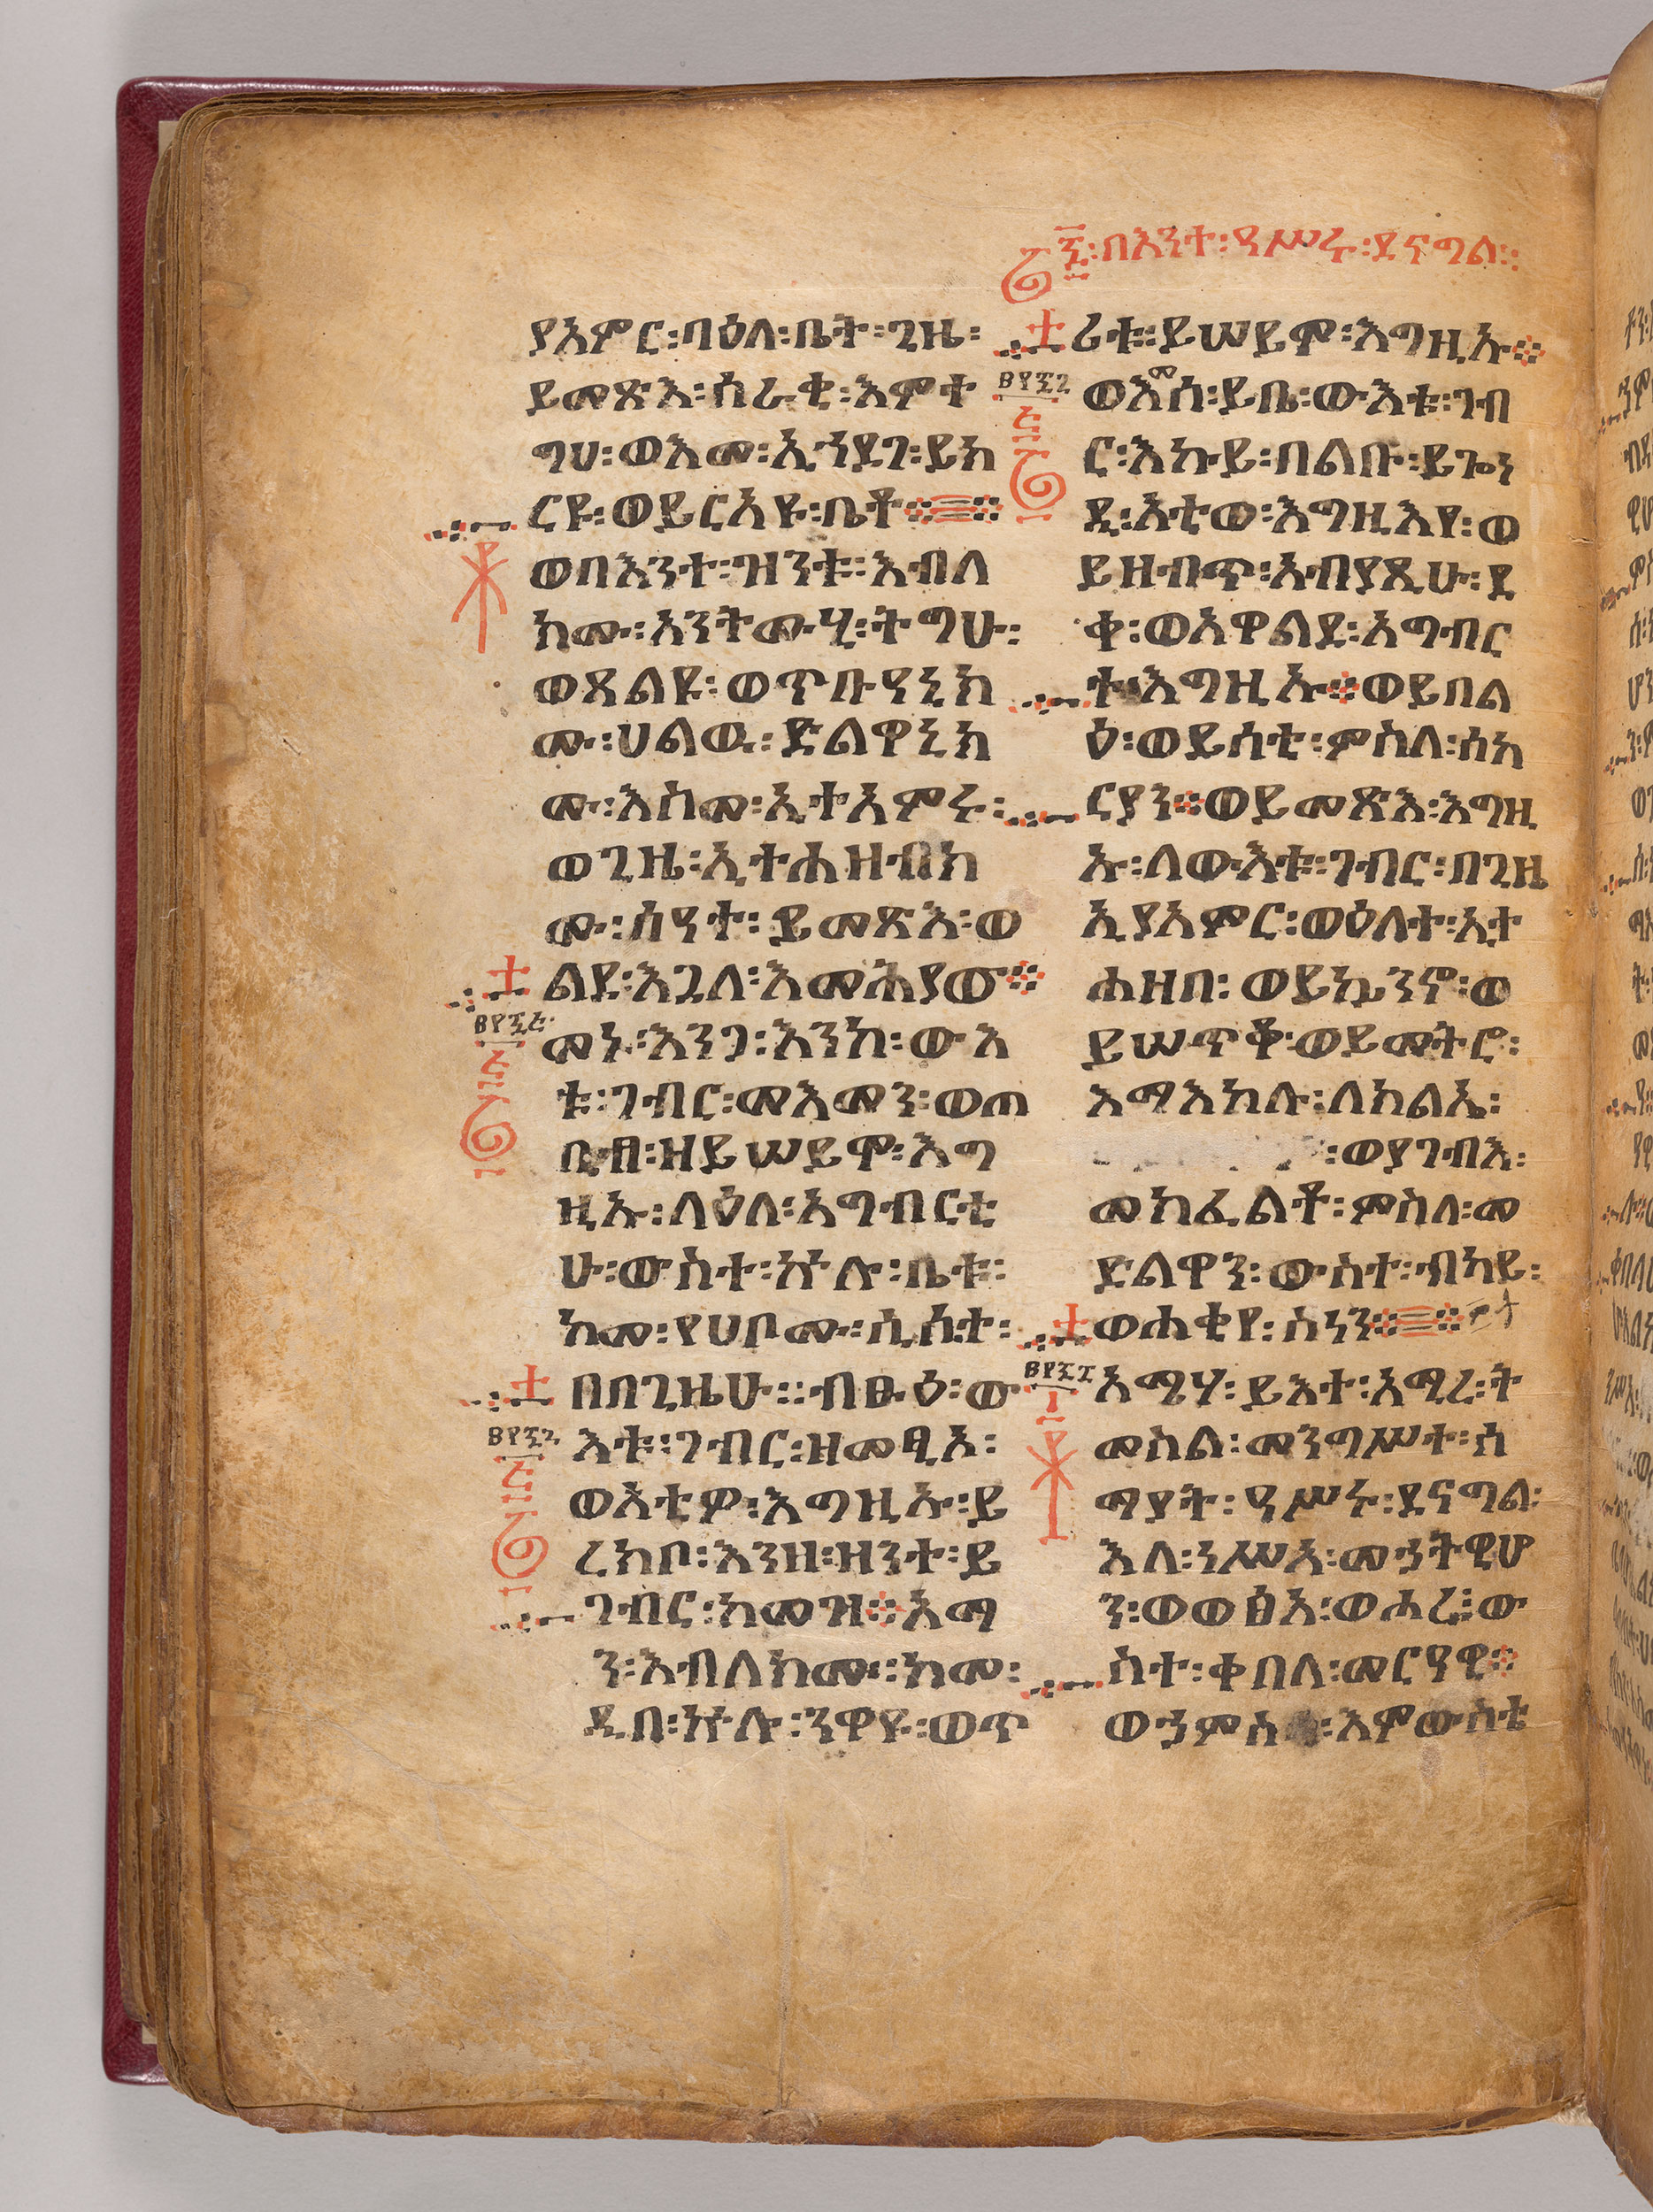 ፷፡በእንተ፡ዓሥሩ፡ደናግል።
ያእምር፡ባዕለ፡ቤት፡ጊዜ፡
ይመጽእ፡ሰራቂ፡እምተ
ግሀ፡ወእመ፡ኢኀደገ፡ይክ
ርዩ፡ወይርአዩ፡ቤቶ
ወበእንተ፡ዝንቱ፡እብለ
ክሙ፡አንትሙሂ፡ትግሁ፡
ወጸልዩ፡ወጥቡዓኒክ
ሙ፡ሀልዉ፡ድልዋኒክ
ሙ፡እስመ፡ኢተአምሩ፡
ወጊዜ፡ኢተሐዘብክ
ሙ፡ሰዓተ፡ይመጽእ፡ወ
ልደ፡እጓለ፡እመሕያው
መኑ፡እንጋ፡እንከ፡ውእ
ቱ፡ገብር፡መእመን፡ወጠ
ቢብ፡ዘይሠይሞ፡እግ
ዚኡ፡ለዕለ፡አግብርቲ
ሁ፡ውስተ፡ኵሉ፡ቤቱ፡
ከመ፡የሀቦሙ፡ሲሲተ፡
በበጊዜሁ።ብፁዕ፡ው
እቱ፡ገብር፡ዘመፂአ፡
ወአቲዎ፡እግዚኡ፡ይ
ረክቦ፡እንዘ፡ዝንተ፡ይ
ገብር፡ከመዝ፨አማ
ን፡እብለክሙ፡ከመ፡
ዲበ፡ኵሉ፡ንዋዩ፡ወጥ
ሪቱ፡ይሠይሞ፡እግዚኡ፨
ወእመሰ፡ይቤ፡ውእቱ፡ገብ
ር፡እኩይ፡በልቡ፡ይጐን
ዲ፡አቲወ፡እግዚእየ፡ወ
ይዘብጥ፡አብያጺሁ፡ደ
ቀ፡ወአዋልደ፡አግብር
ተ፡እግዚኡ፨ወይበል
ዕ፡ወይሰቲ፡ምስለ፡ሰካ
ርያን፨ወይመጽእ፡እግዚ
ኡ፡ለውእቱ፡ገብር፡በጊዜ
ኢያአምር፡ወዕለተ፡ኢተ
ሐዘበ፡ወይኴንኖ፡ወ
ይሠጥቆ፡ወይመትሮ፡
እማእከሉ፡ለክልኤ፡
፡ወያገብእ፡
መክፈልቶ፡ምስለ፡መ
ድልዋን፡ውስተ፡ብካይ፡
ወሐቂየ፡ስነን
አሜሃ፡ይእተ፡አሚረ፡ት
መስል፡መንግሥተ፡ሰ
ማያት፡ዓሥሩ፡ደናግል፡
እለ፡ነሥኣ፡መኃትዊሆ
ን፡ወወፅአ፡ወሖረ፡ው
ስተ፡ቀበለ፡መርዓዊ፨
ወኃምስ፡እምውስቴ